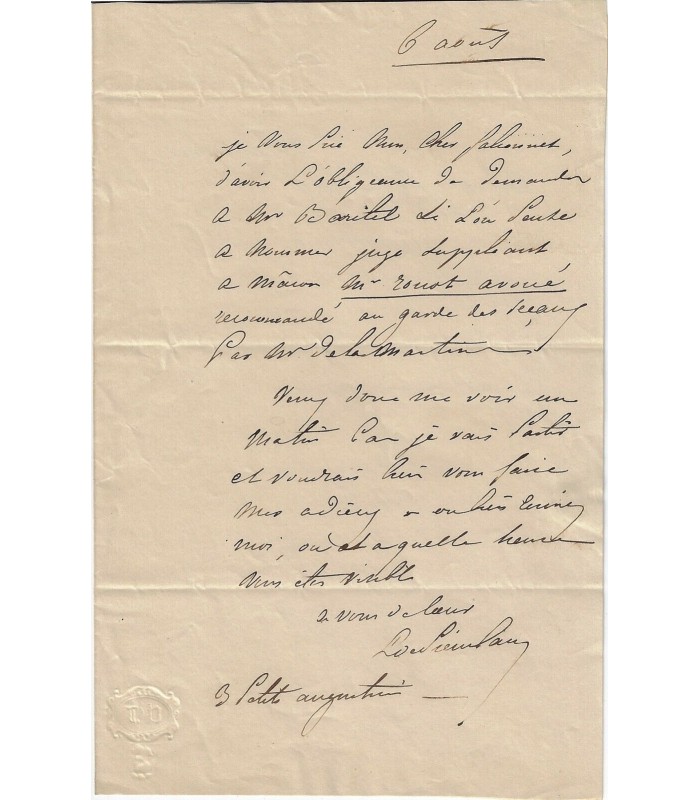 6 août
je vous prie mon cher
d'avoir L'obligeance de demander
a Mr Baritel Si L'on pense
a nommer juge suppléant
a mâcon Mr rouot avoué,
recommandé au garde des sçeaux
Par Mr de la Martine
Venez donc me voir un
matin Car je vais Partir
et voudrais bien vous faire
mes adieux ou bien Ecrivez
moi, ou et a quelle heure
vous êtes visible
a vous de Cœur
3 Petits augustins